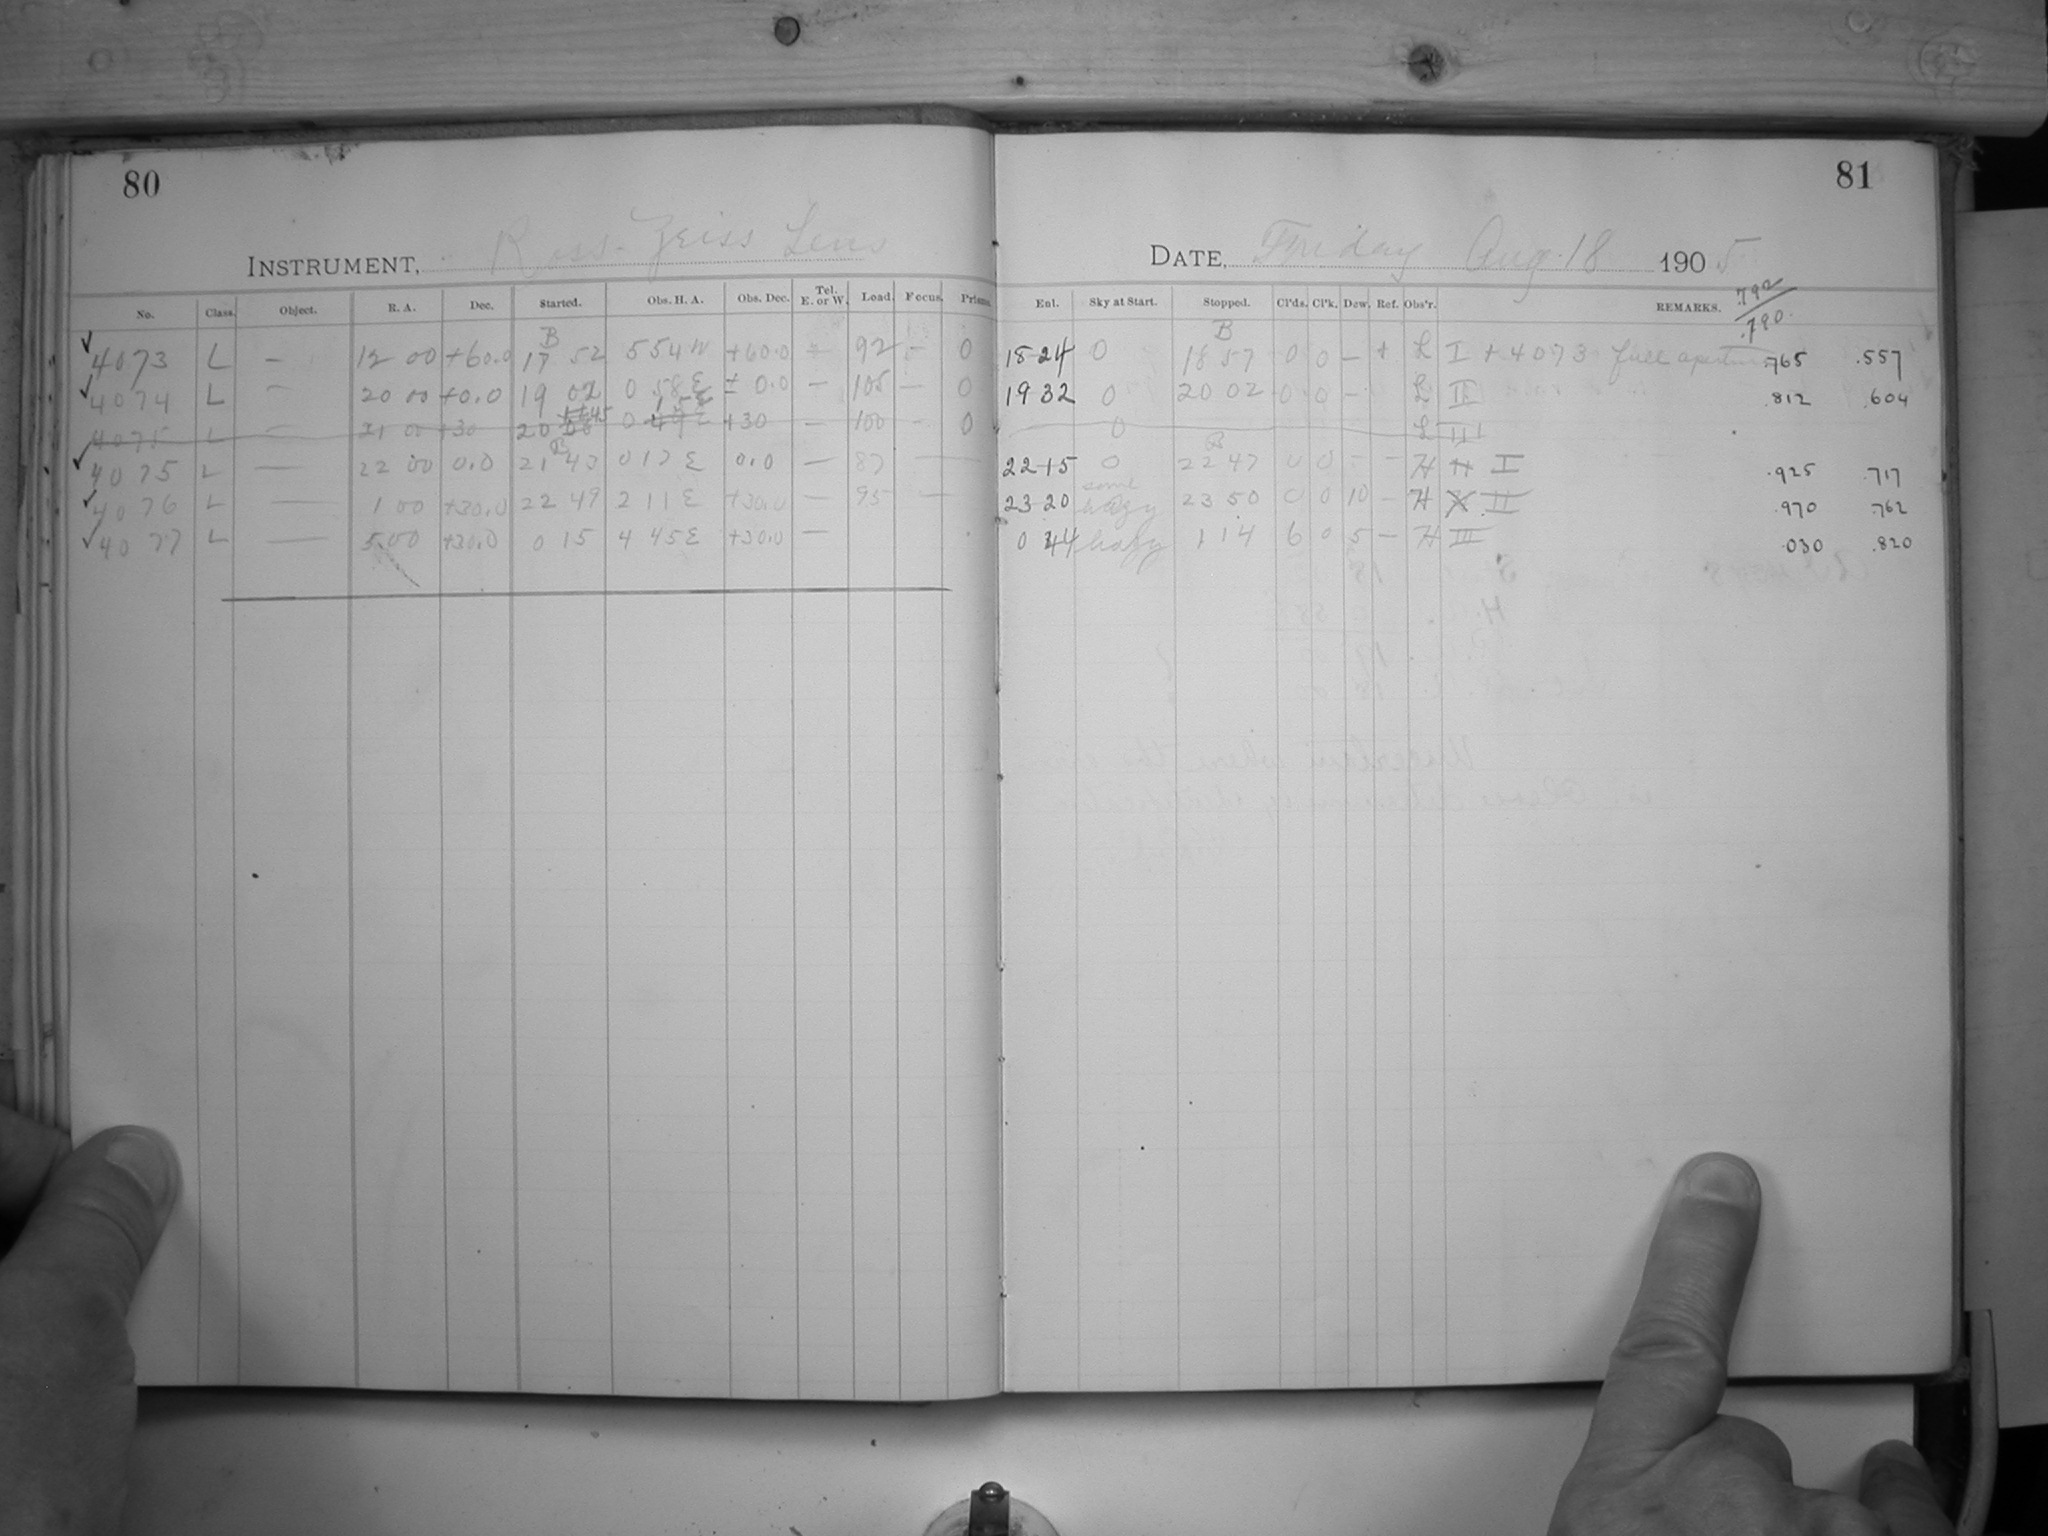 80
81
INSTRUMENT, Ross-Zeiss Lens
DATE, Friday Aug. 18 1905
No. Class. Object. R. A. Dec. Started. Obs. H. A. Obs. Dec. Tel. E. or W. Load. Focus. Prisms.
Enl. Sky at Start. Stopped. Cl'ds. Cl'k. Dew. Ref. Obs'r. REMARKS. .792
.790
B B
✓ 4073 L — 12 00 +60.0 17 52 5 54 W +60.0 — 92 — 0 18-24 0 18 57 0 0 — + L I + 4073 full aperture .765 .557
✓ 4074 L — 20 00 +0.0 19 02 0 58 E ± 0.0 — 105 — 0 19 32 0 20 02 0 0 — L II .812 .604
4075 L — 21 00 +30 20 +30 — 100 — 0 0 L III
B B
✓ 4075 L — 22 00 0.0 21 43 0 17 E 0.0 — 87 — 22-15 0 22 47 0 0 — — H I .925 .717
✓ 4076 L — 1 00 +30.0 22 49 2 11 E +30.0 — 95 — 23-20 some hazy 23 50 0 0 10 — H II .970 .762
✓ 4077 L — 5.00 +30.0 0 15 4 45 E +30.0 — 0 44 hazy 1 14 6 0 5 — H III .030 .820